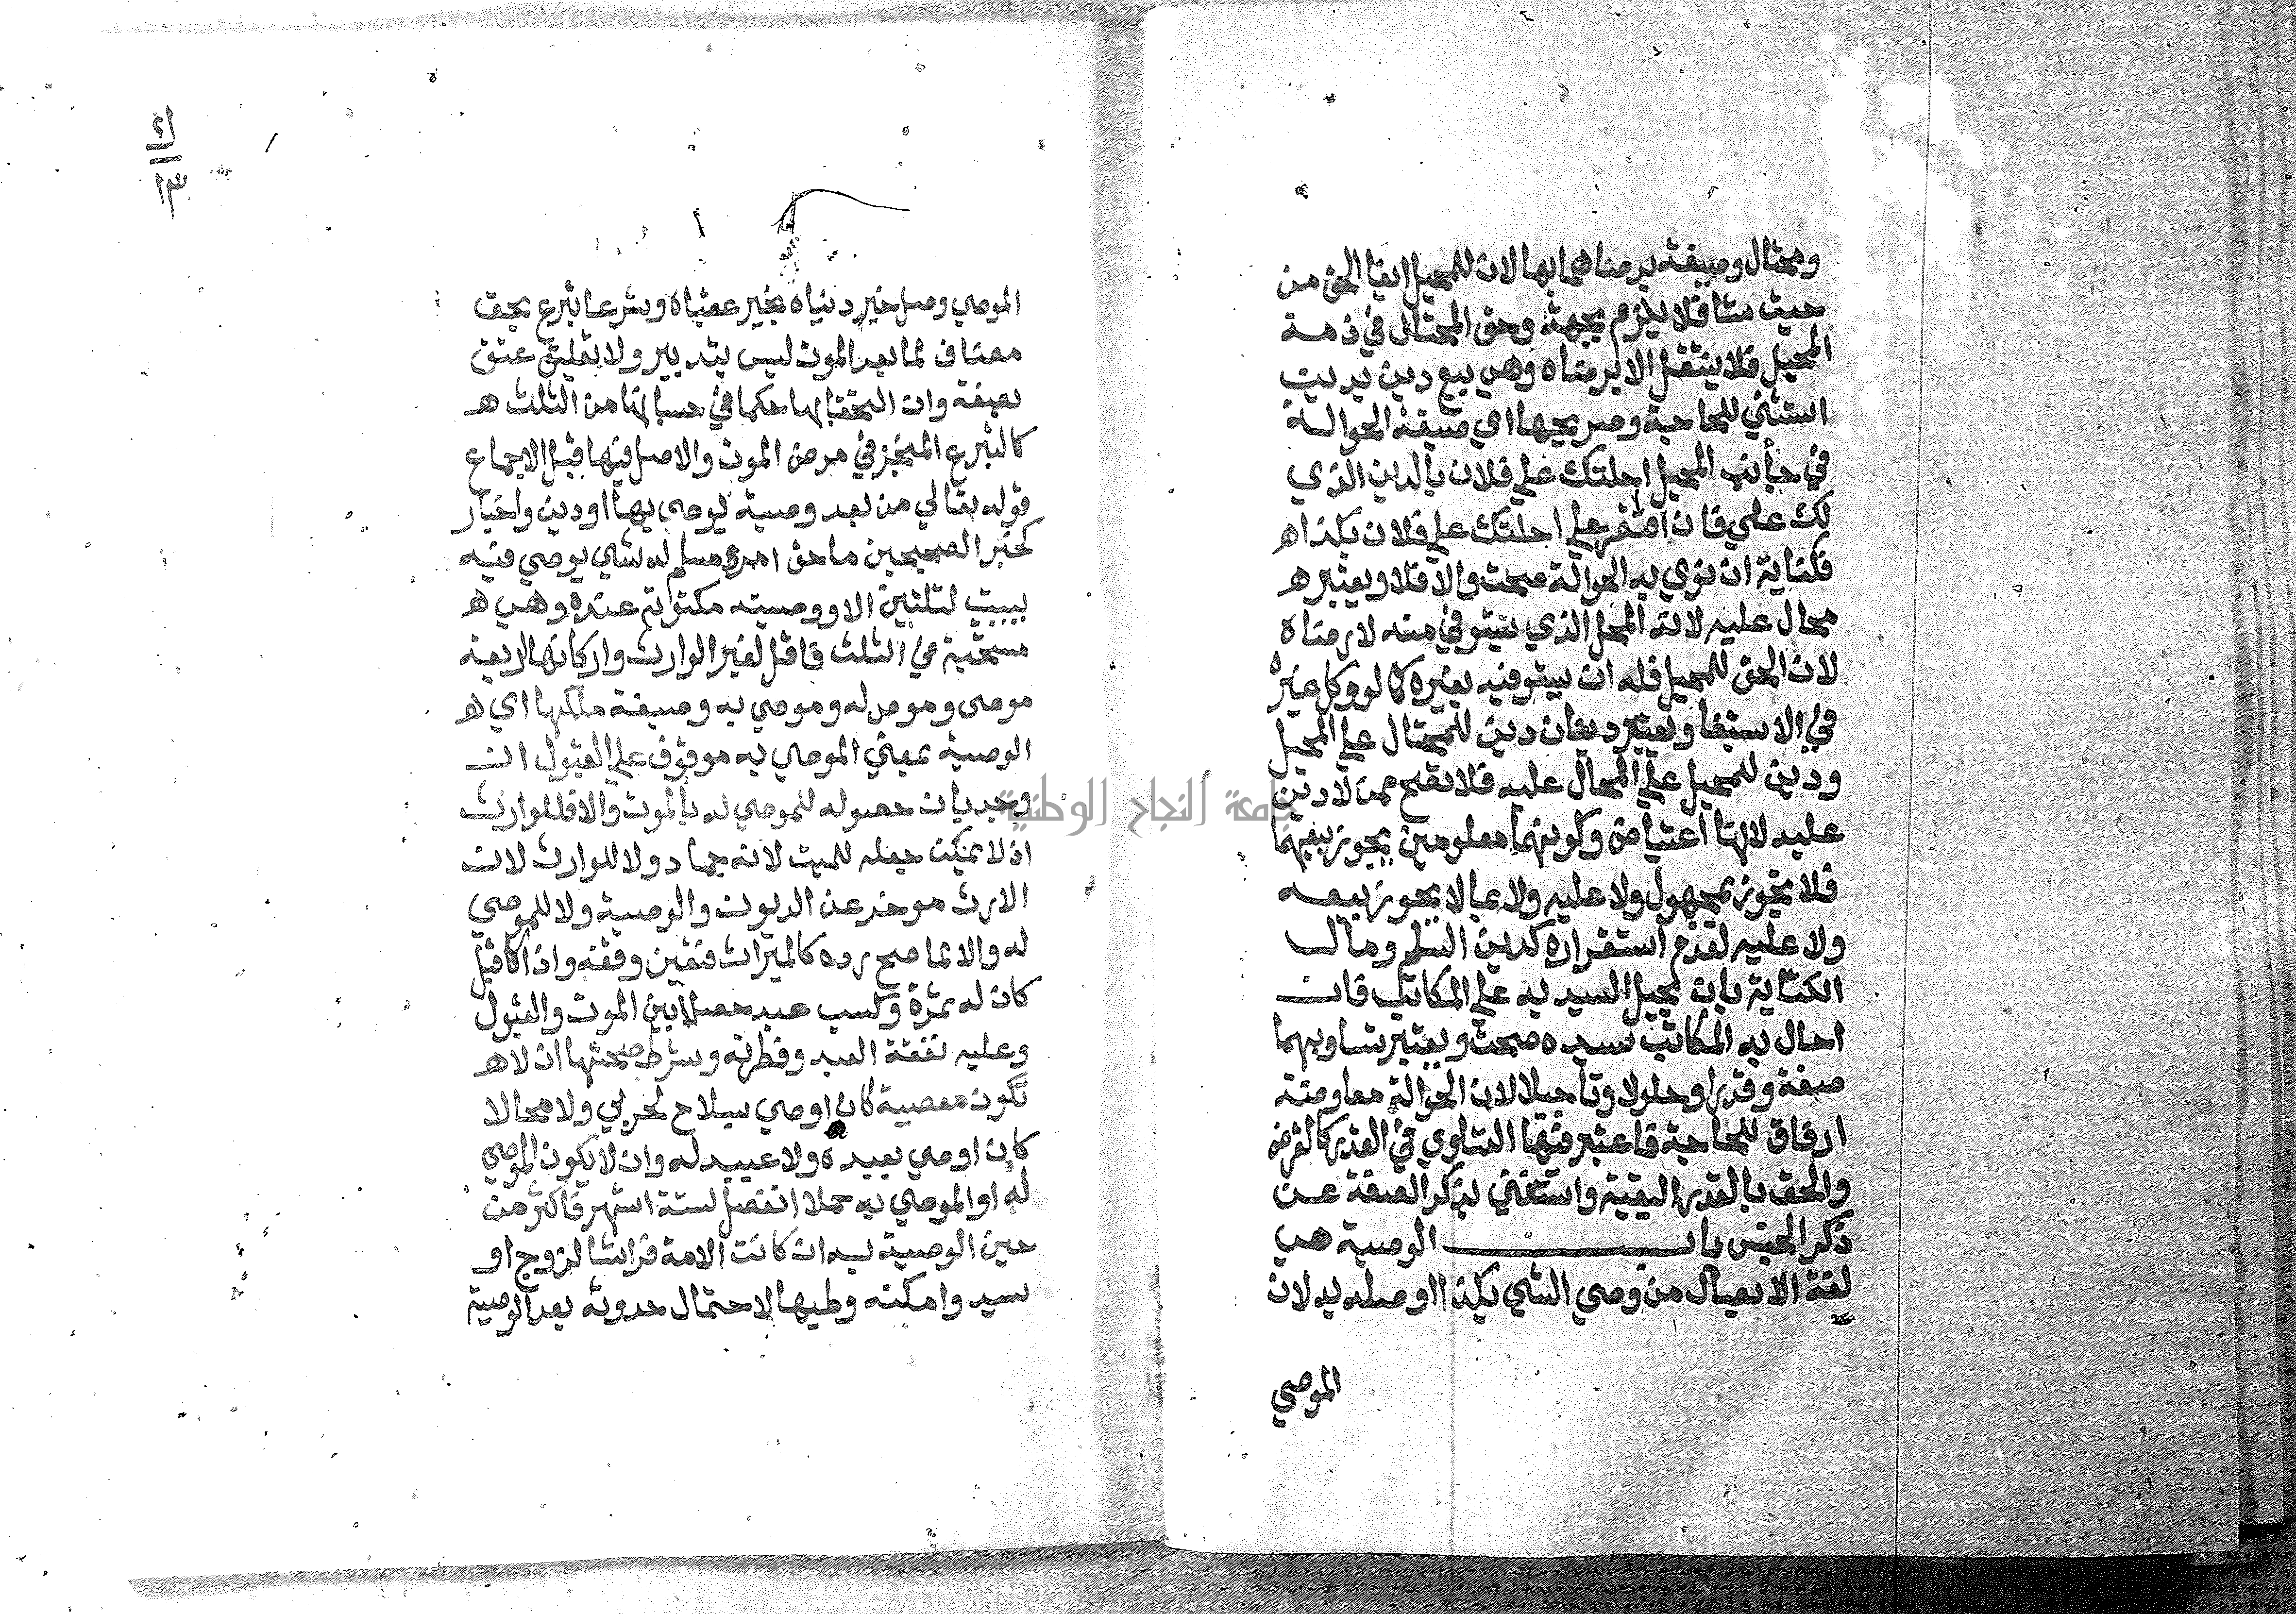 ومحتال وصيغة برضاهما بها لان للمحيل ايفا الحق من
حيث شا فلا يلزم بجهة وحق المحتال في ذمة
المحيل فلا ينتقل الا برضاه وهي بيع دين بدين
استثني للحاجة وصريحها اي صيغة الحوالة
في جانب المحيل احلتك علي فلان بالدين الذي
لك علي فان اقتصر علي احلتك علي فلان بكذا ه
فكناية ان نوي به الحوالة صحت والا فلا ويعتبر ه
محال عليه لانه المحل الذي يستوفي منه لا رضاه
لان الحق للمحيل فله ان يستوفيه بغيره كما لو وكل غيره
في الاستيفا ويعتبر دينان دين للمحتال علي المحيل
ودين للمحيل علي المحال عليه فلا تصح ممن لا دين
عليه لانها اعتياض وكونهما معلومين يجوز بيعهما
فلا تجوز بمجهول ولا عليه ولا بما لا يجوز بيعه
ولا عليه لعدم استقراره كدين السلم ومال
الكتابة بان يحيل السيد به علي المكاتب فان
احال به المكاتب سيده صحت ويعتبر تساويهما
صفة وقدرا وحلولا وتاجيلا لان الحوالة معاوضة
ارفاق للحاجة فاعتبر فيها التساوي في القدر كالقرض
والحق بالقدر البقية واستغني بذكر الصفة عن
ذكر الجنس باب الوصية هي
لغة الايصال من وصي الشي بكذا اوصله به لان
الموصي
الموصي وصل خير دنياه بخير عقباه وشرعا تبرع بحق
مضاف لما بعد الموت ليس بتدبير ولا تعليق عتق
بصفة وان التحقا بها حكما في حسابهما من الثلث ه
كالتبرع المنجز في مرض الموت والاصل فيها قبل الاجماع
قوله تعالي من بعد وصية يوصي بها او دين واخبار
كخبر الصحيحين ما حق امرء مسلم له شي يوصي فيه
يبيت لليلتين الا ووصيته مكتوبة عنده وهي ه
مستحبة في الثلث فاقل لغير الوارث واركانها اربعة
موصي وموصي له وموصي به وصيغة ملكها اي ه
الوصية بمعني الموصي به موقوف علي القبول ان
وجد بان حصوله للموصي له بالموت والا فللوارث
اذ لا يمكن جعله للميت لانه جماد ولا للوارث لان
الارث موخر عن الديون والوصية ولا للموصي
له والا لما صح رده كالميراث فتعين وقفه واذا قبل
كان له ثمرة وكسب عبد حصلا بين الموت والقبول
وعليه نفقة العبد وفطرته وشرط صحتها ان لا ه
تكون معصية كان اوصي بسلاح لحربي ولا محالا
كان اوصي بعبده ولا عبيد له وان لا يكون الموصي
له او الموصي به حملا انفصل لستة اشهر فاكثر من
حين الوصية به ان كانت الامة فراشا لزوج او
سيد وامكنه وطيها لاحتمال حدوثه بعد الوصية
جامعة النجاح الوطنية